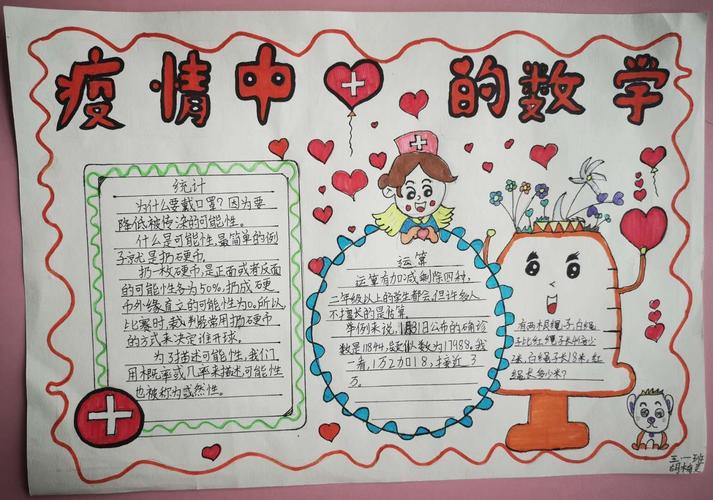 疫情中的数学
统计
为什么要戴口罩?因为要
降低被传染的可能性。
什么是可能性,最简单的例
子就是扔硬币。
扔一枚硬币,是正面或者反面
的可能性各为50%,扔成硬
币外缘直立的可能性为0。所以
比赛时,裁判经常用扔硬币
的方式来决定谁开球。
为了描述可能性,我们
用概率或几率来描述,可能性
也被称为或然性。
运算
运算有加减乘除四种,
二年级以上的学生都会,但许多人
不擅长的是估算。
举例来说,1月31日公布的确诊
数是11844,疑似数为17988,我
一看,1万2加18,接近3
万。
有两根绳子,白绳
子比红绳子长多少
米,白绳子长18米,红
绳长多少米?
三.一班